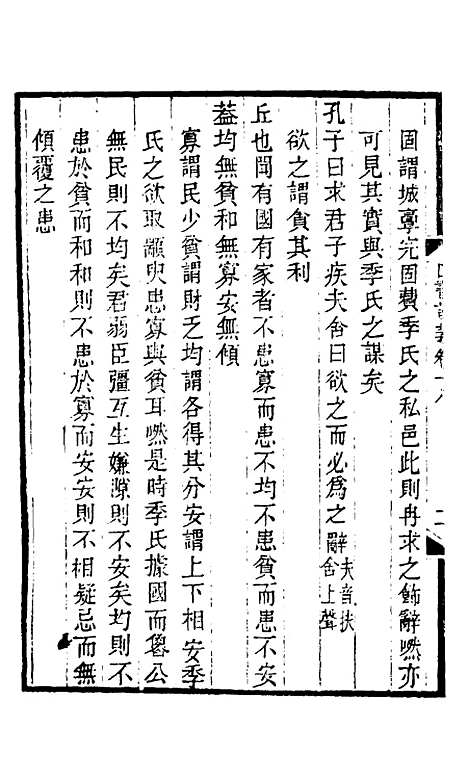 固謂城孽完固費季氏之私邑此則冉求之飾辭然亦
可見其實與季氏之謀矣
孔子曰求君子疾夫舍曰欲之而必爲之辭夫音扶舍上聲
欲之謂貪其利
丘也聞有國有家者不患寡而患不均不患貧而患不安
蓋均無貧和無寡安無傾
寡謂民少貧謂財乏均謂各得其分安謂上下相安季
氏之欲取顓臾患寡與貧耳然是時季氏據國而魯公
無民則不均矣君弱臣彊互生嫌隙則不安矣均則不
患於貧而和和則不患於寡而安安則不相疑忌而無
傾覆之患